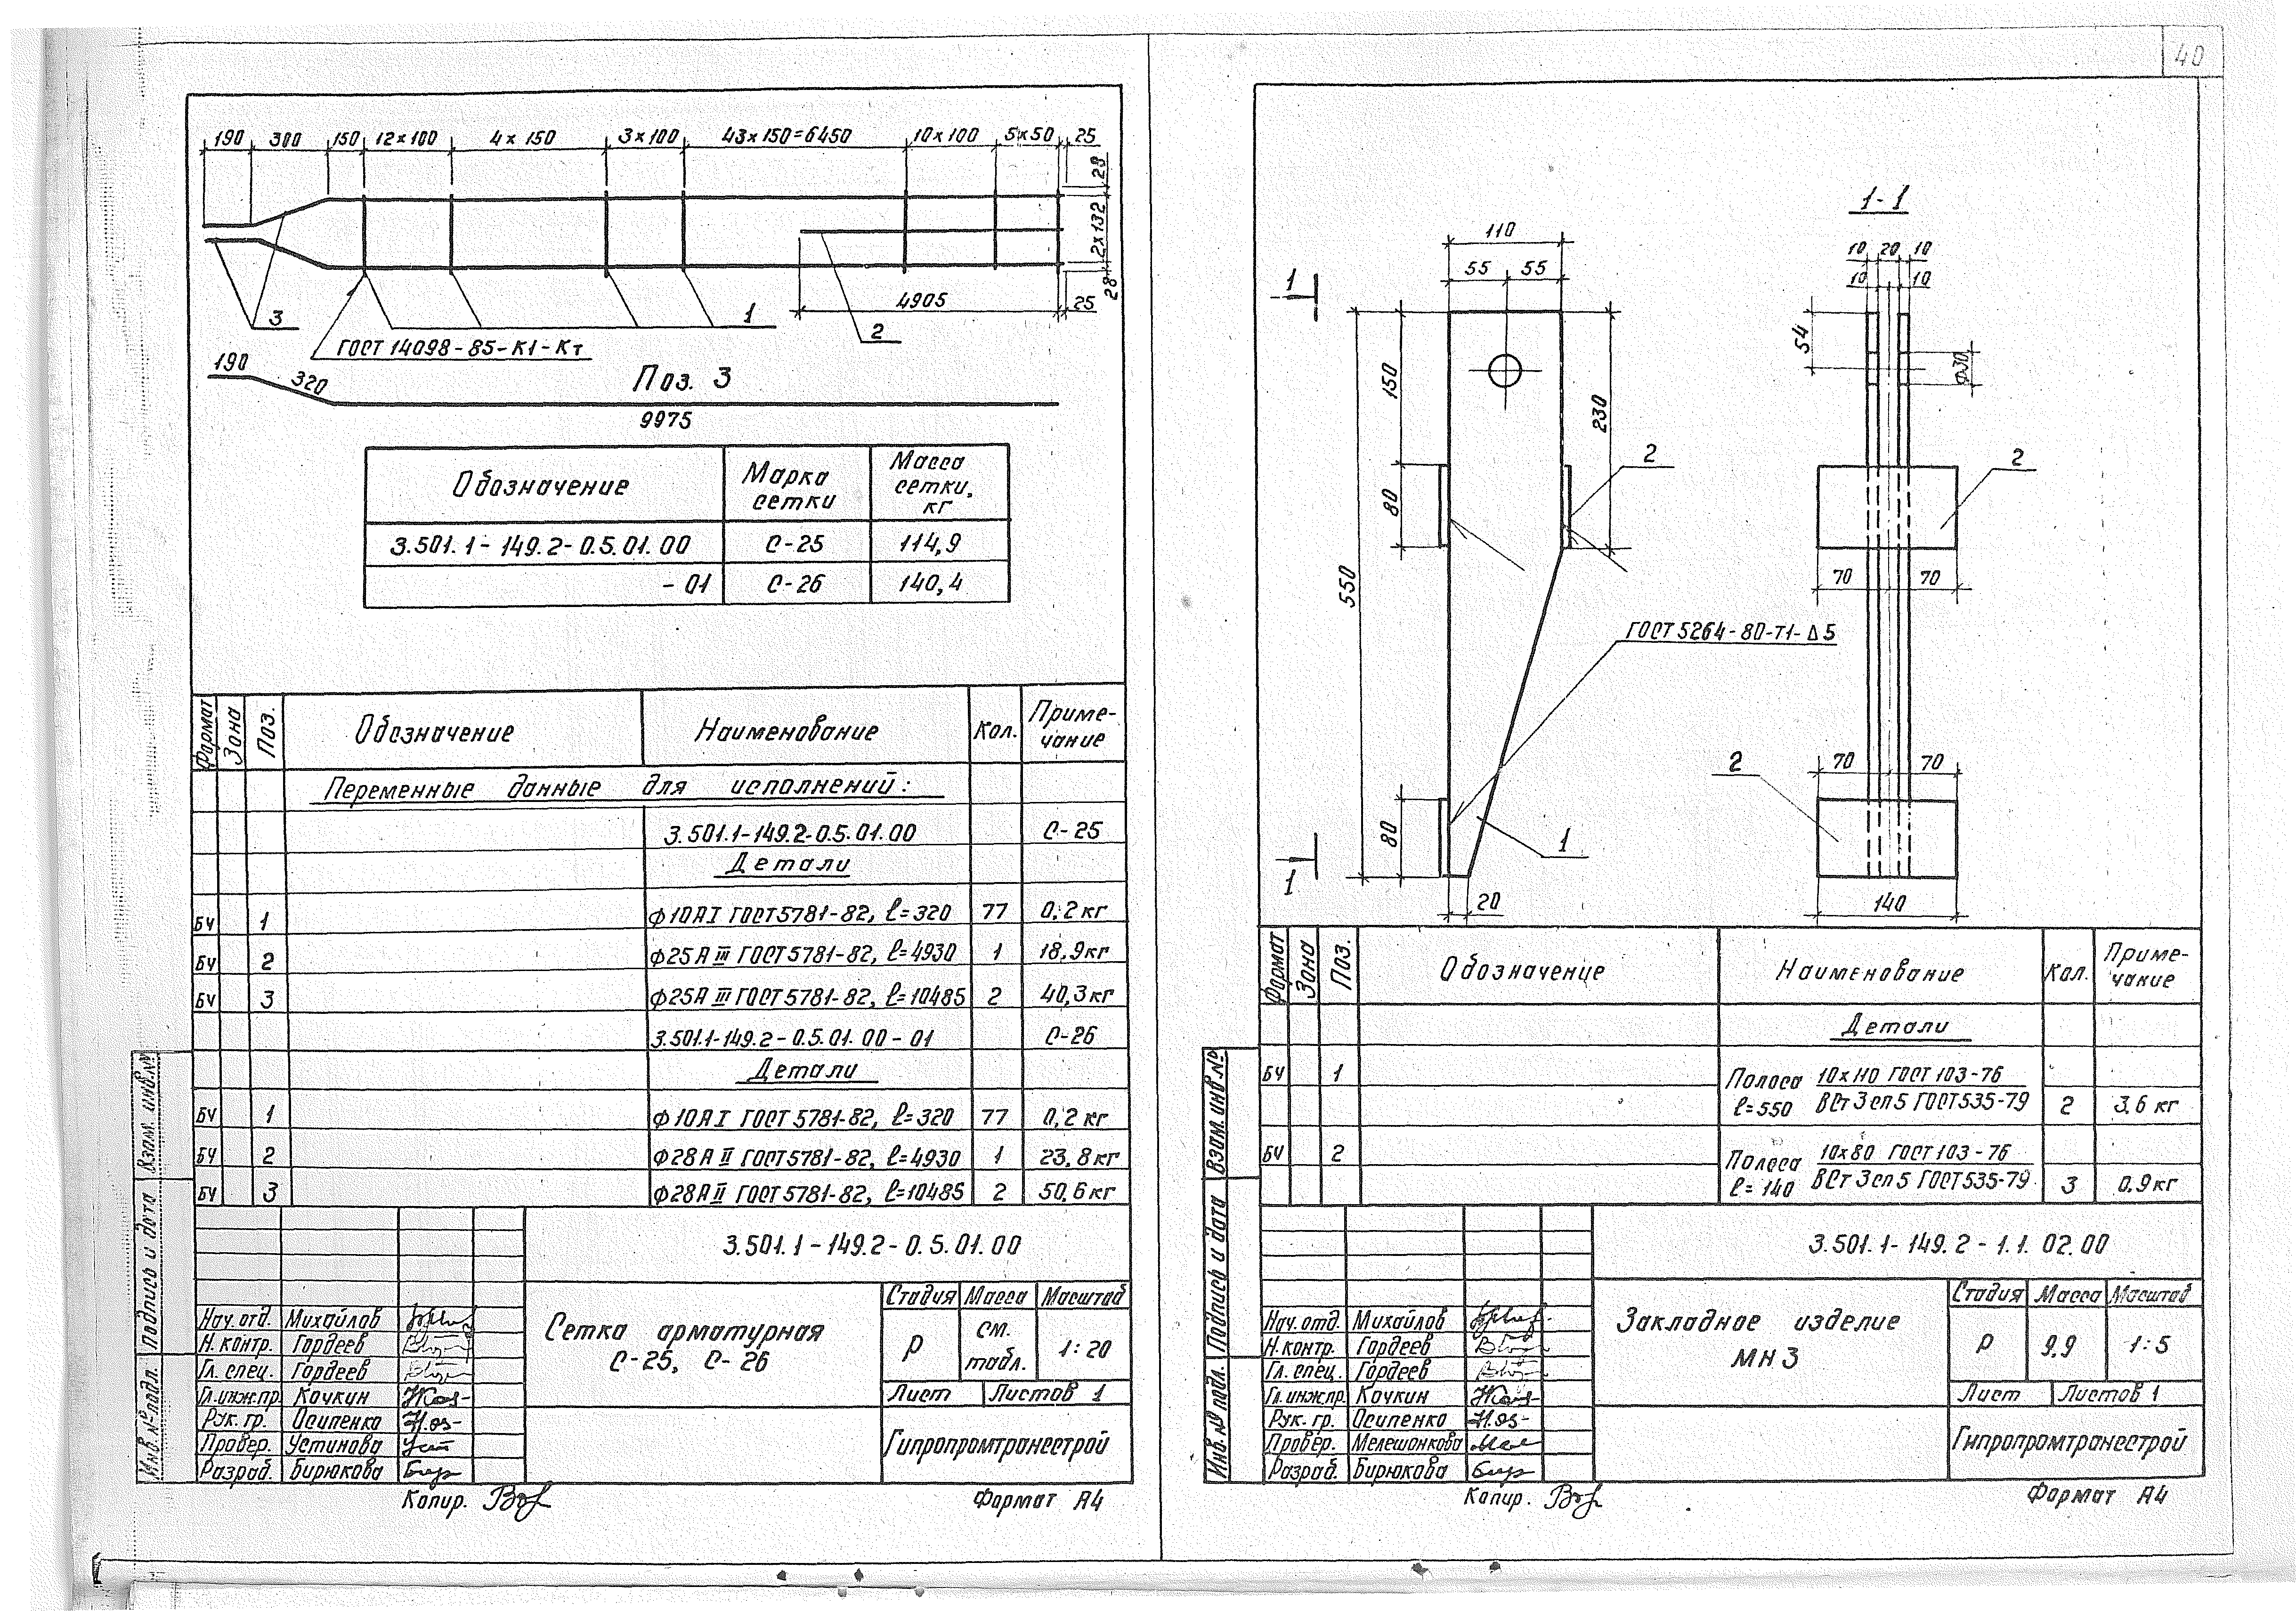 40
190 300 150 12×100 4×150 3×100 43×150=6450 10×100 5×50 25
28
2×132
28
4905 25
3 1 2
ГОСТ 14098-85-К1-Кт
190 320
Поз. 3
9975
Обозначение Марка сетки Масса сетки, кг
3.501.1-149.2-0.5.01.00 С-25 114,9
-01 С-26 140,4
Формат Зона Поз. Обозначение Наименование Кол. Примечание
Переменные данные для исполнений:
3.501.1-149.2-0.5.01.00 С-25
Детали
БЧ 1 Ф10АI ГОСТ 5781-82, ℓ=320 77 0,2 кг
БЧ 2 Ф25АIII ГОСТ 5781-82, ℓ=4930 1 18,9 кг
БЧ 3 Ф25АIII ГОСТ 5781-82, ℓ=10485 2 40,3 кг
3.501.1-149.2-0.5.01.00-01 С-26
Детали
БЧ 1 Ф10АI ГОСТ 5781-82, ℓ=320 77 0,2 кг
БЧ 2 Ф28АII ГОСТ 5781-82, ℓ=4930 1 23,8 кг
БЧ 3 Ф28АII ГОСТ 5781-82, ℓ=10485 2 50,6 кг
3.501.1-149.2-0.5.01.00
Сетка арматурная
С-25, С-26
Стадия Масса Масштаб
Р см. табл. 1:20
Лист Листов 1
Гипропромтрансстрой
Нач. отд. Михайлов
Н. контр. Гордеев
Гл. спец. Гордеев
Гл. инж.пр. Кочкин
Рук. гр. Осипенко
Провер. Устинова
Разраб. Бирюкова
Взам. инв.№
Подпись и дата
Инв.№подл.
Копир. Формат А4
1-1
110
55 55
1
150
80
550
80
230
2
ГОСТ 5264-80-Т1-Δ5
1
1
20
10 20 10
10 10
54
Ф30
2
70 70
2
70 70
140
Формат Зона Поз. Обозначение Наименование Кол. Примечание
Детали
БЧ 1 Полоса 10×110 ГОСТ 103-76
ℓ=550 ВСт3сп5 ГОСТ 535-79 2 3,6 кг
БЧ 2 Полоса 10×80 ГОСТ 103-76
ℓ=140 ВСт3сп5 ГОСТ 535-79 3 0,9 кг
3.501.1-149.2-1.1.02.00
Закладное изделие
МН3
Стадия Масса Масштаб
Р 9,9 1:5
Лист Листов 1
Гипропромтрансстрой
Нач. отд. Михайлов
Н. контр. Гордеев
Гл. спец. Гордеев
Гл. инж.пр. Кочкин
Рук. гр. Осипенко
Провер. Мелешонкова
Разраб. Бирюкова
Взам. инв.№
Подпись и дата
Инв.№ подл.
Копир. Формат А4